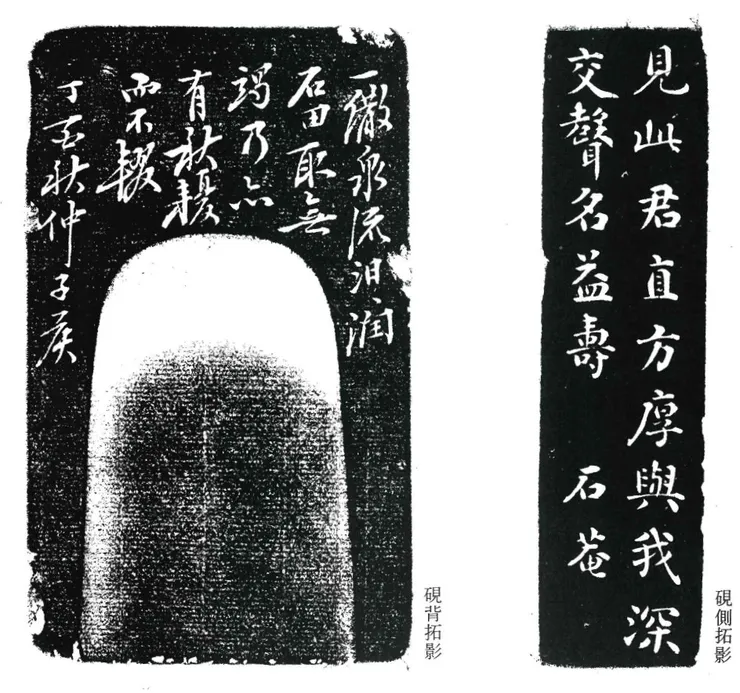 見此君直方厚與我深
交聲名益壽 石菴
硯側拓影
一泉流汩汩潤
石田取無
竭乃亦
有秋耰
而不輟
丁秋仲子
硯背拓影